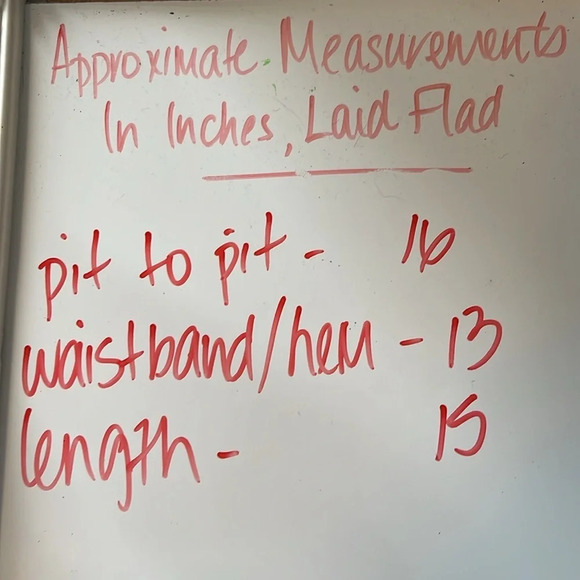 Approximate Measurements
In Inches, Laid Flad
pit to pit - 16
waistband/hem - 13
length - 15